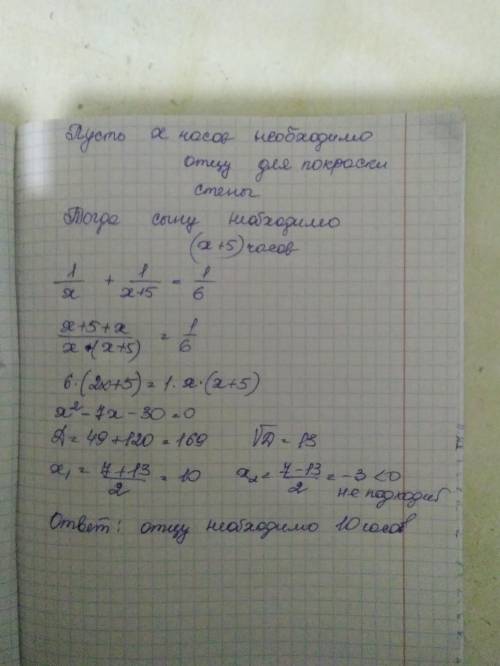 Пусть x часов необходимо
отцу для покраски
стены.
Тогда сыну необходимо
(x+5) часов
1/x + 1/(x+5) = 1/6
(x+5+x)/(x·(x+5)) = 1/6
6·(2x+5)=1·x·(x+5)
x²-7x-30=0
D=49+120=169 √D=13
x₁=(7+13)/2=10 x₂=(7-13)/2=-3<0
не подходит
Ответ: отцу необходимо 10 часов